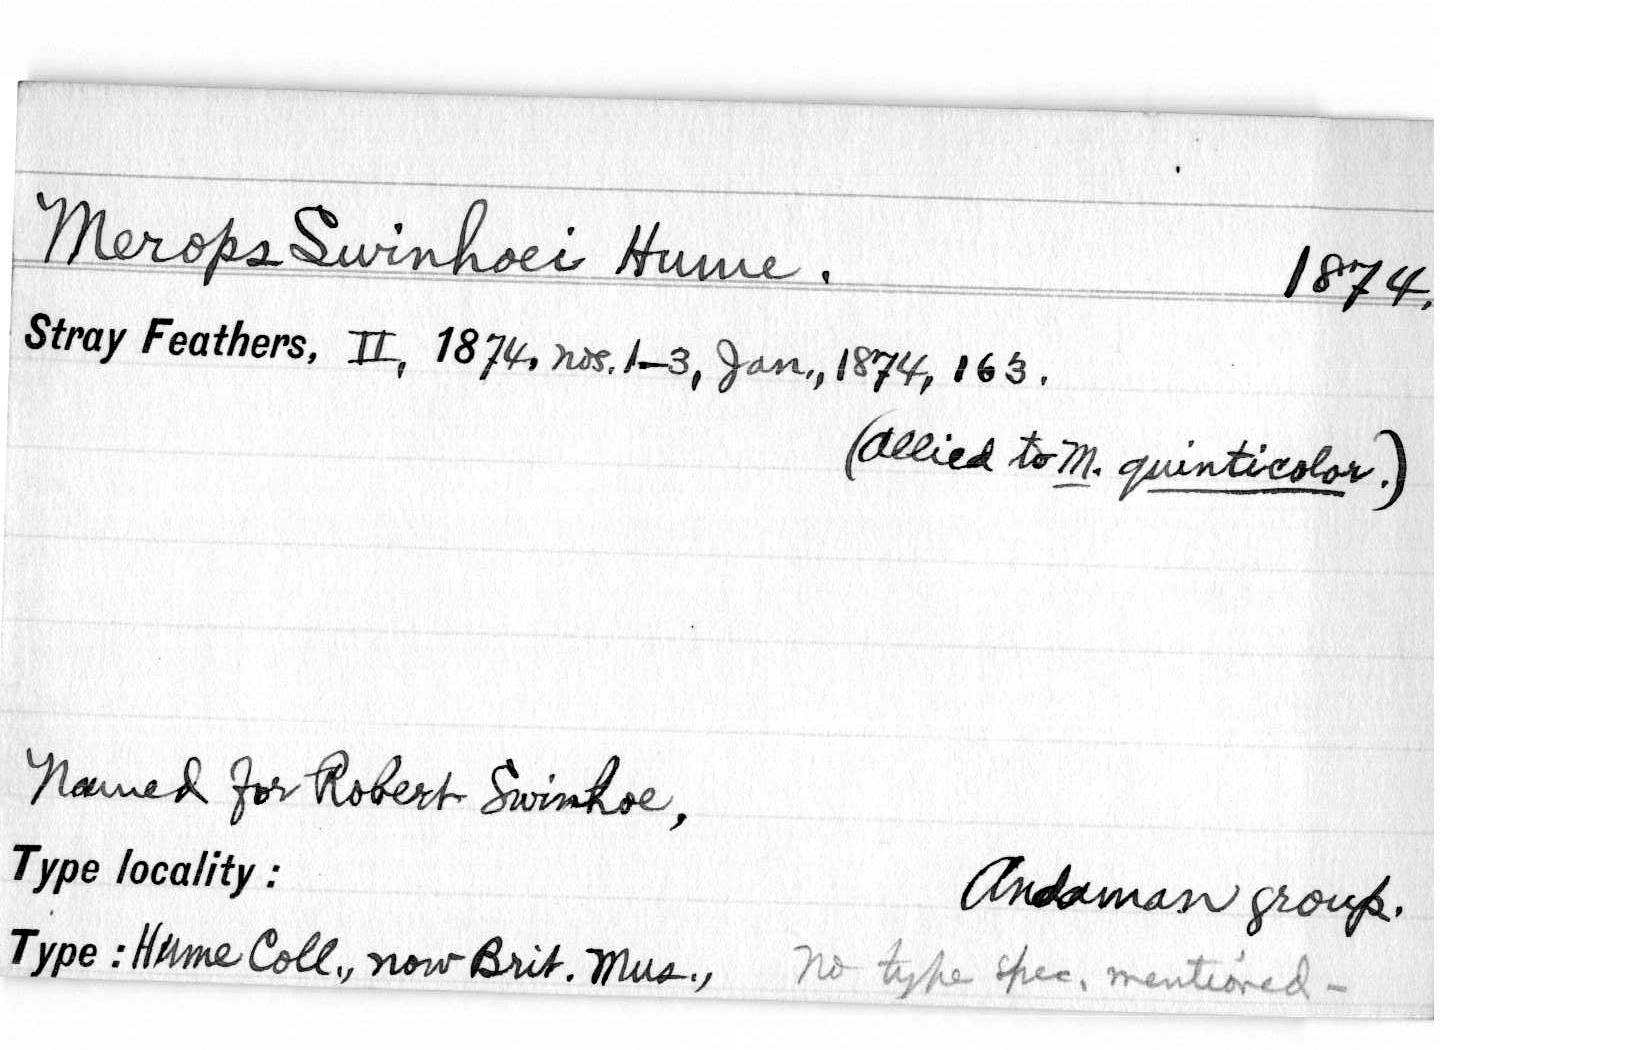 Merops Swinhoei Hume. 1874.
Stray Feathers, II, 1874, nos. 1-3, Jan., 1874, 163.
(allied to M. quinticolor.)
Named for Robert Swinhoe,
Type locality: Andaman group.
Type: Hume Coll., now Brit. Mus., No type spec. mentioned-